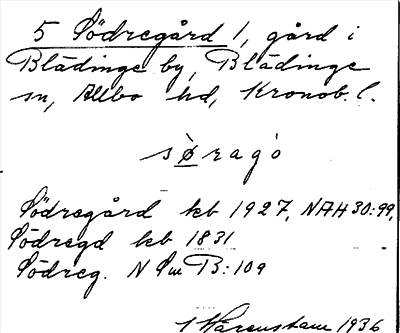 5 Södregård 1, gård i
Blädinge by, Blädinge
sn, Allbo hd, Kronob. l.
sø̀ragò
Södregård kb 1927, NAH 30:99,
Södregd kb 1831
Södreg. N Sm B:109
1936